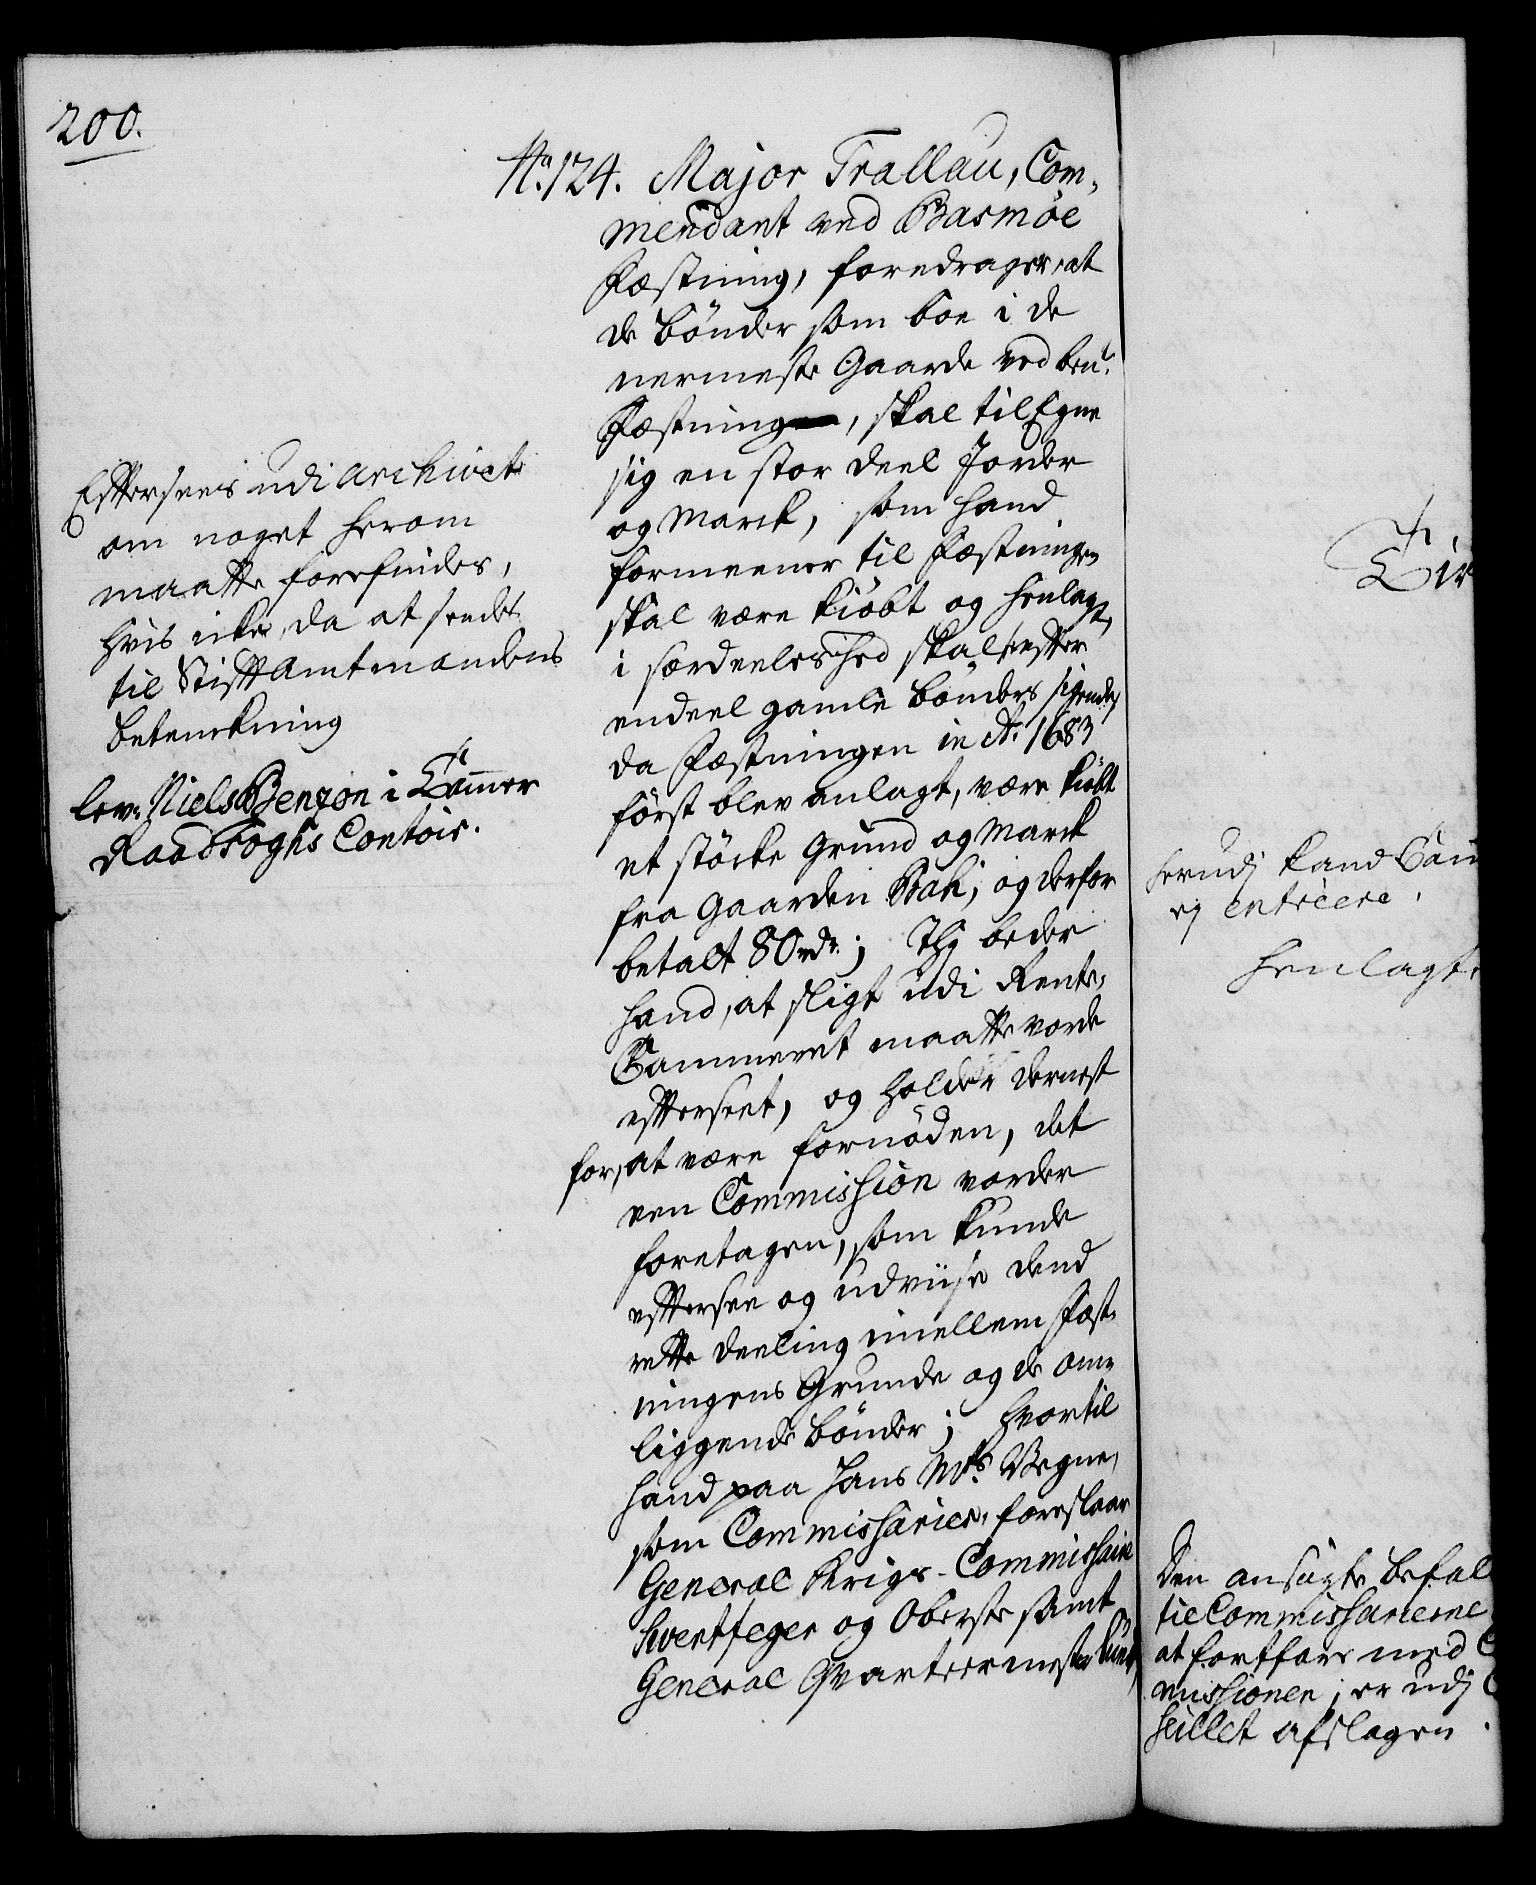 200.
No. 124. Major Trallau, Com-
mendant ved Basmöe
Fæstning, foredrager, at
de bönder som boe i de
nermeste Gaarde ved bem.te
Fæstning, skal til Egne
sig en stor deel Jorder
og Marck, som hand
formeener til Fæstningen
skal være kiöbt og henlagt,
i særdeeleshed skal effter
endeel gamle bönders sigende,
da Fæstningen in Ao. 1683
först blev anlagt, være kiöbt
et stöcke Grund og Marck
fra Gaarden Bak, og derfor
betalt 80 rdr.; Thj beder
hand, at sligt udi Rente-
Cammeret maatte vorde
effterseet, og holder dernest
for, at være fornöden, det
een Commission vorder
foretagen, som kunde
efftersee og udviise dend
rette deeling imellem Fæst-
ningens Grunde og de om-
liggende bönder; hvortil
hand paa Hans Mts. Vegne,
som Commissarier, foreslaar
General Krigs-Commissair
Svertfeger og Oberste samt
General Qvarteermester
Efftersees udi Archivet
om noget herom
maatte forefindes,
hvis icke, da at sendes
til Stifft Amtmandens
betenckning
lev. Niels Benzon i Cammer
Raad Foghs Contoir.
herudj kand
ej entrēere.
henlagt.
Den ansögte befal
til Commissarierne
at fortfare med
missionen, er udj
seillet afslagen.